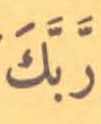 رَّبَّكَ